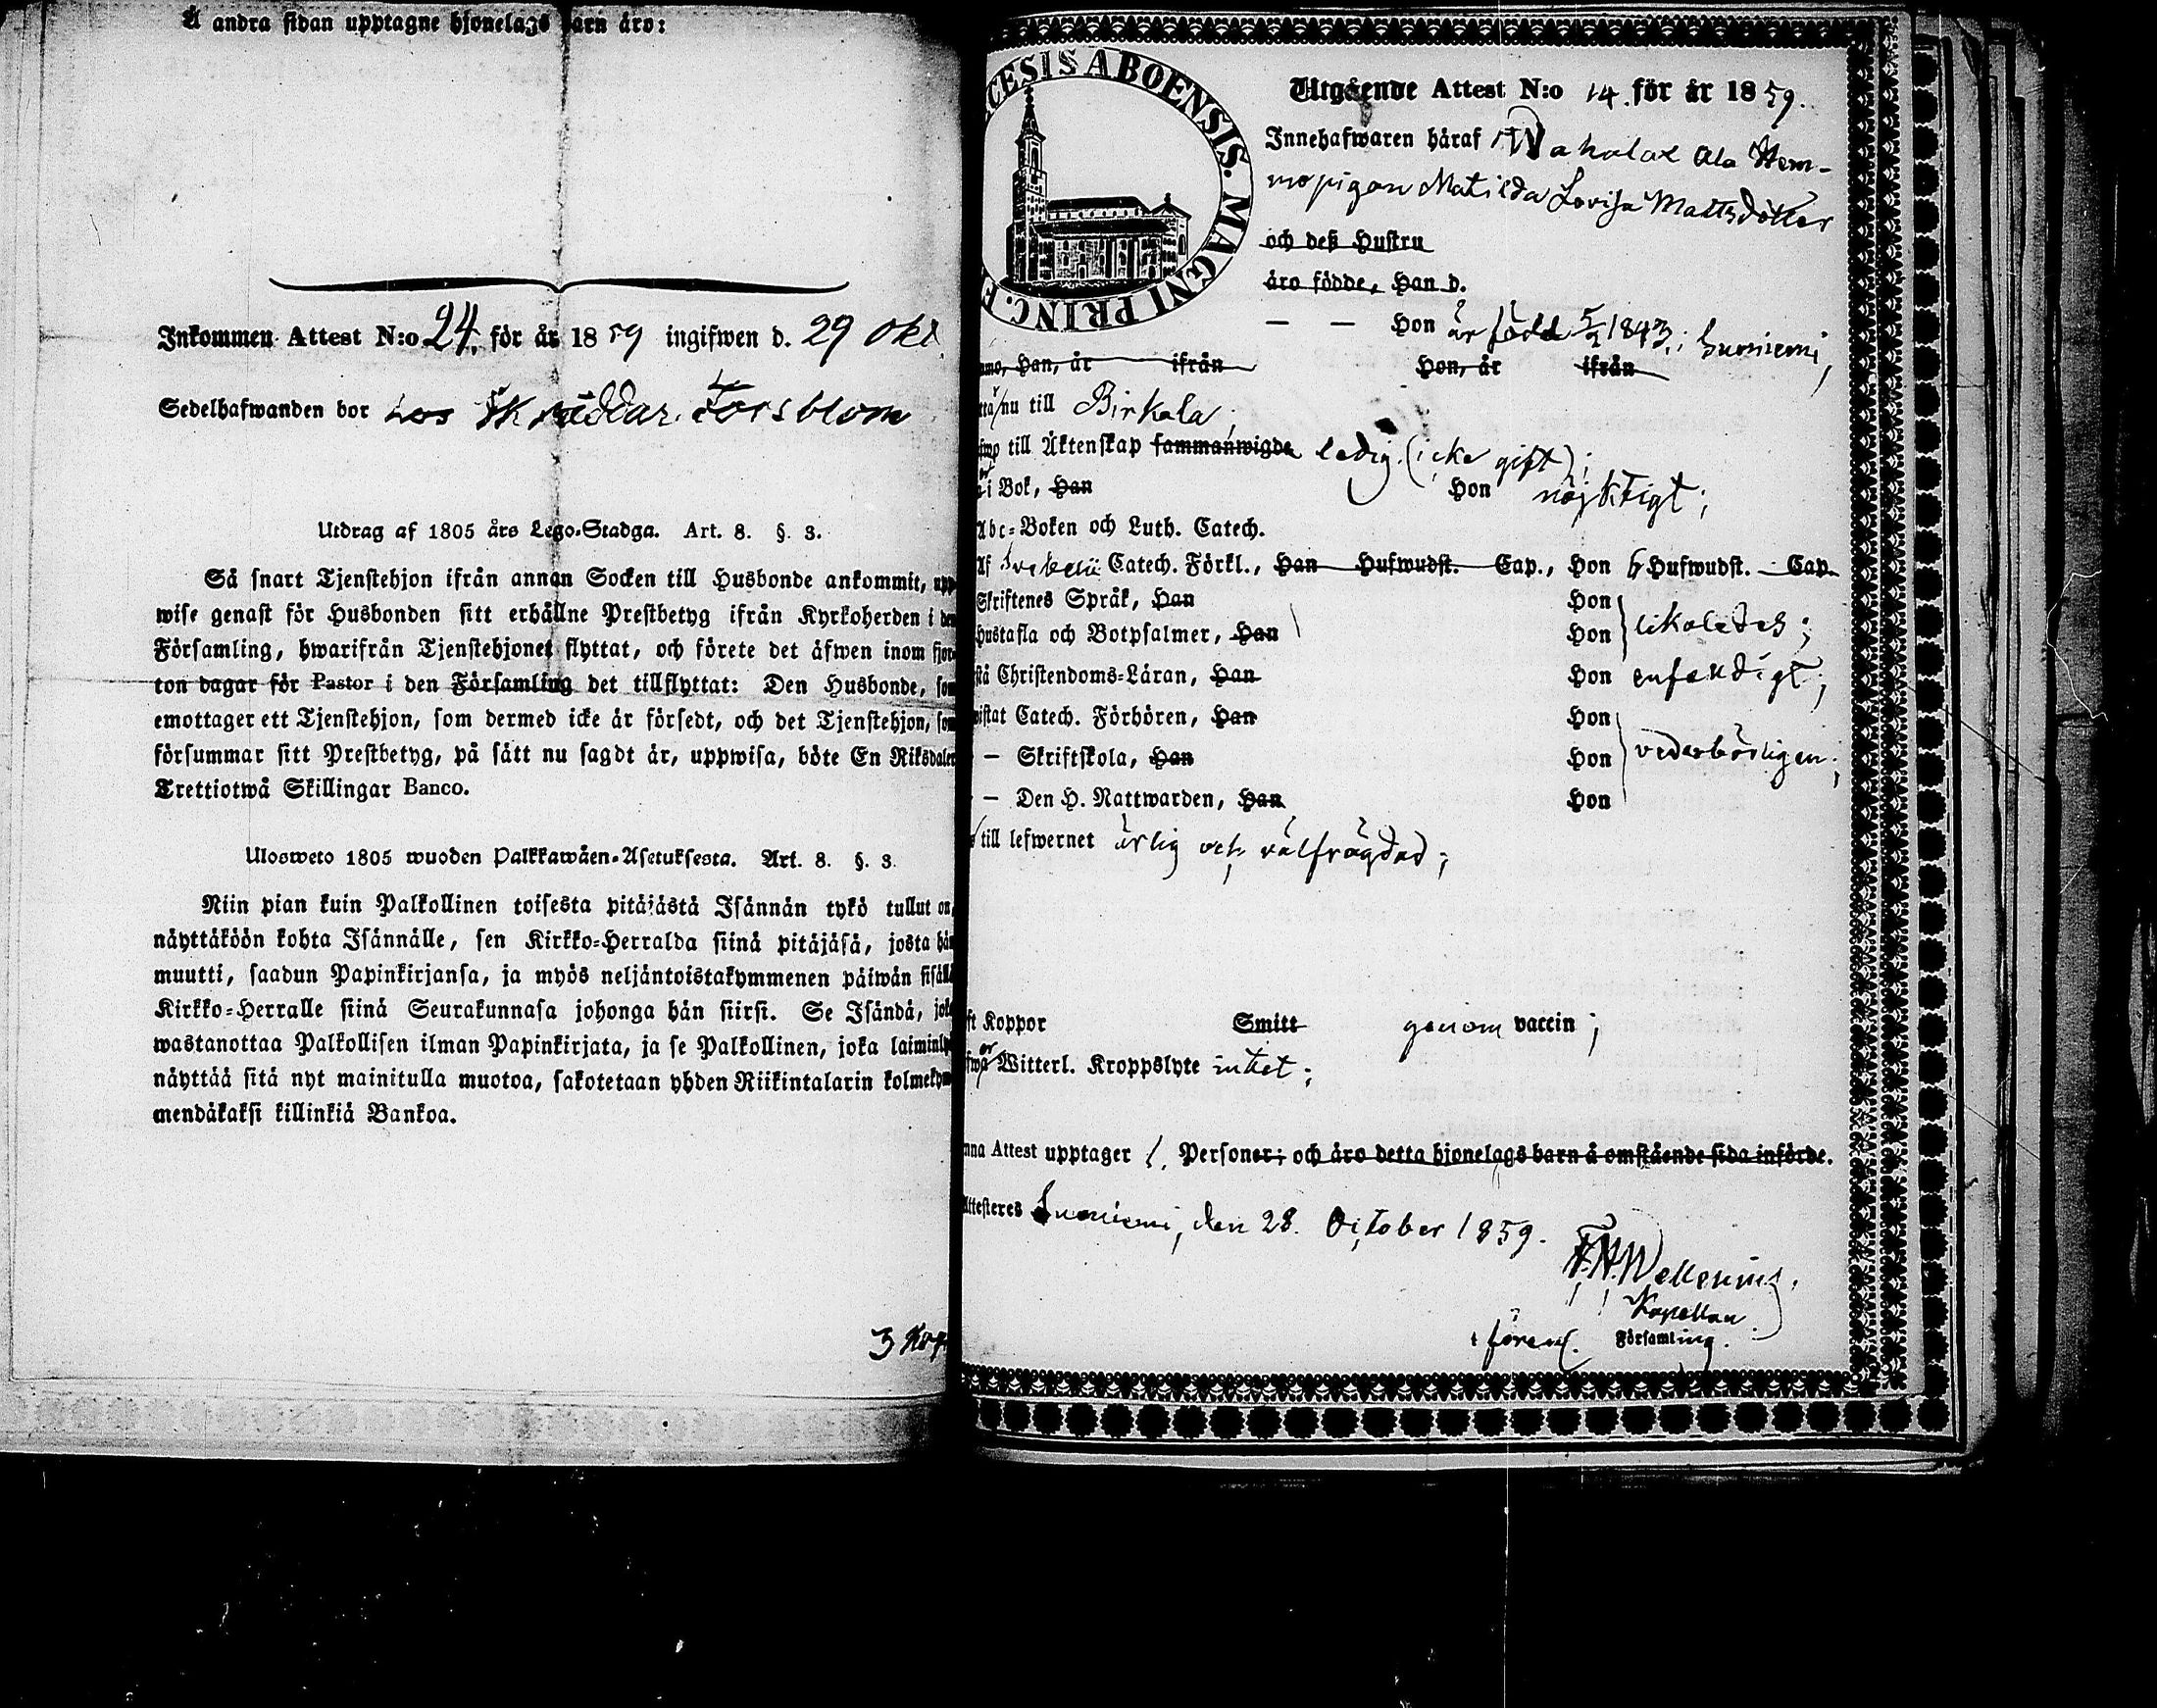 Å andra sidan upptagne hjonelags barn äro:
Inkommen Attest N:o 24. för år 1859 ingifwen d. 29 Okt.
Sedelhafwanden bor hos Skräddar. Forsblom
Utdrag af 1805 års Lego-Stadga. Art. 8. §. 3.
Så snart Tjenstehjon ifrån annan Socken till Husbonde ankommit, upp
wise genast för Husbonden sitt erhållne Prestbetyg ifrån Kyrkoherden i den
Församling, hwarifrån Tjenstehjonet flyttat, och förete det äfwen inom fjor
ton dagar för Pastor i den Församling det tillflyttat: Den Husbonde, som
emottager ett Tjenstehjon, som dermed icke är försedt, och det Tjenstehjon, som
försummar sitt Prestbetyg, på sätt nu sagdt är, uppwisa, böte En Riksdaler
Trettiotwå Skillingar Banco.
Ulosweto 1805 wuoden Palkkawäen-Asetuksesta. Art. 8. §. 3.
Niin pian kuin Palkollinen toisesta pitäjästä Isännän tykö tullut on,
näyttäköön kohta Isännälle, sen Kirkko-Herralda siinä pitäjäsä, josta hän
muutti, saadun Papinkirjansa, ja myös neljäntoistakymmenen päiwän sisällä
Kirkko-Herralle siinä Seurakunnasa johonga hän siirsi. Se Isändä, joka
wastanottaa Palkollisen ilman Papinkirjata, ja se Palkollinen, joka laiminly
näyttää sitä nyt mainitulla muotoa, sakotetaan yhden Riikintalarin kolmekym
mendäkaksi killinkiä Bankoa.
3 Kop
CESIS ABOENSIS. MAGNI PRINC. F
Utgående Attest N:o 14. för år 1859.
Innehafwaren häraf Wahalax Ala Hem-
mopigan Matilda Lovisa Mattsdotter
och deß Hustru
äro födde, Han d.
— — Hon är född 5/2 1843. i Suoniemi,
Han, år ifrån Hon, år ifrån
nu till Birkala;
till Äktenskap sammanwigde ledig (icke gift);
i Bok, Han Hon nöjktigt;
Abc-Boken och Luth. Catech.
Af Svebelii Catech. Förkl., Han Hufwudst. Cap., Hon 6 Hufwudst. Cap.
Skriftenes Språk, Han Hon
Hustafla och Botpsalmer, Han Hon likaledes;
Christendoms-Läran, Han Hon enfaldigt;
Catech. Förhören, Han Hon
— Skriftskola, Han Hon vederbörligen;
— Den H. Nattwarden, Han Hon
till lefwernet ärlig och välfrägdad;
Koppor Smitt genom vaccin;
Witterl. Kroppslyte intet;
Attest upptager 1. Personer; och äro detta hjonelags barn å omstående sida införde.
Attesteres Suoniemi, den 28. October 1859.
F. H. Wellenius.
Kapellan
i förenl. Församling.